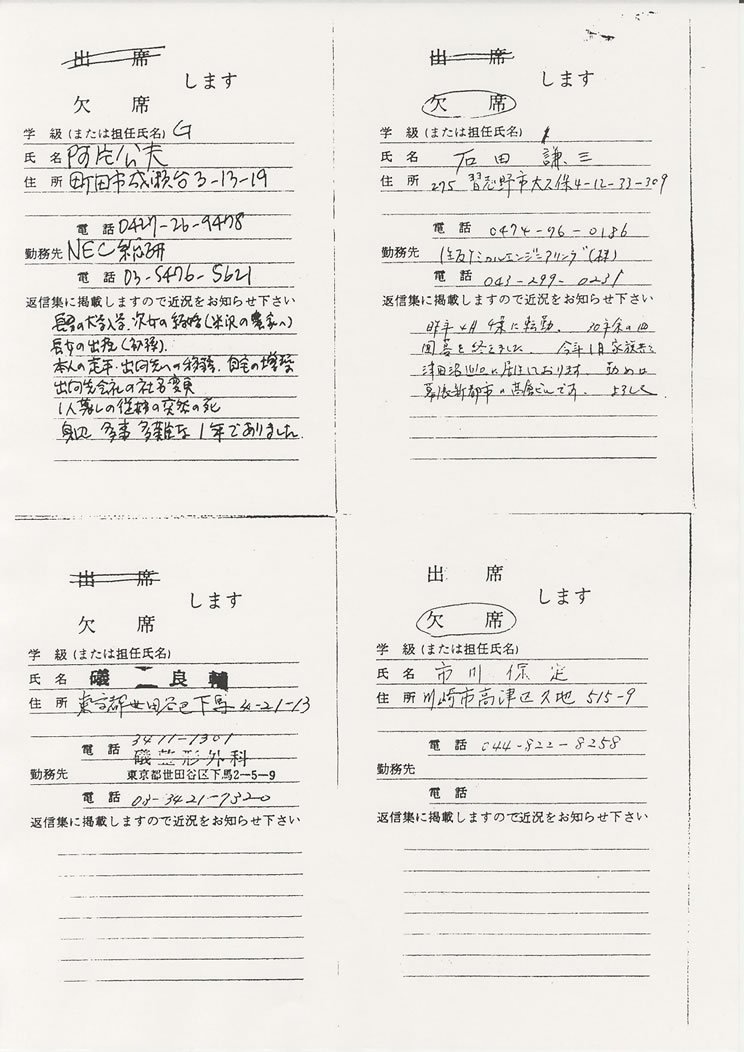 出 席
します
欠 席
学 級 (または担任氏名) G
氏 名 阿片公夫
住 所 町田市成瀬台3-13-19
電 話 0427-26-9478
勤務先 NEC
電 話 03-5476-5621
返信集に掲載しますので近況をお知らせ下さい
長男の大学入学、次女の結婚(米沢の農家へ)
長女の出産
本人の定年・出向先への移籍、自宅の増築
出向先会社の社名変更
1人暮しの 突然の死
身辺 多事多難な1年でありました。
出 席
します
欠 席
学 級 (または担任氏名)
氏 名 石田 謙三
住 所 275 習志野市大久保4-12-33-309
電 話 0474-76-0186
勤務先 住友ケミカルエンジニアリング(株)
電 話 043-299-0231
返信集に掲載しますので近況をお知らせ下さい
昨年4月 千葉に転勤。 10年余の四
国暮を終えました。 今年1月家族共々
津田沼 に居住しております。 勤めは
幕張新都市の高層ビルです。 よろしく
出 席
します
欠 席
学 級 (または担任氏名)
氏 名 磯 二 良 輔
住 所 東京都世田谷区下馬4-21-13
電 話 3411-1301
磯整形外科
勤務先 東京都世田谷区下馬2-5-9
電 話 03-3421-7320
返信集に掲載しますので近況をお知らせ下さい
出 席
します
欠 席
学 級 (または担任氏名)
氏 名 市川 保定
住 所 川崎市高津区久地 515-9
電 話 044-822-8258
勤務先
電 話
返信集に掲載しますので近況をお知らせ下さい